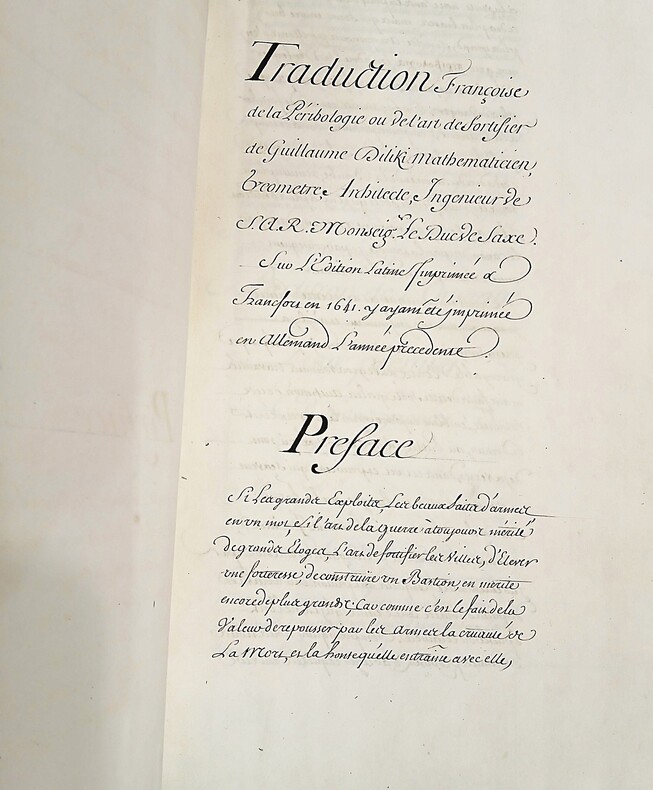 Traduction Françoise
de la Péribologie ou de l'art de fortifier
de Guillaume Diliki Mathematicien,
Geometre, Architecte, Ingenieur de
S.A.R. Monseig.r Le Duc de Saxe.
Sur L'Edition Latine Imprimée a
Francfort en 1641. y ayant été imprimée
en Allemand L'année precedente.
Preface
Si Les grands Exploits, Les beaux faits d'armes
en un mot, si l'art de la Guerre a toujours mérité
de grands Eloges, L'art de fortifier les Villes, d'Elever
une forteresse, de construire un Bastion, en mérite
encore de plus grands; Car comme c'est le fait de la
Valeur de repousser par les armes la cruauté de
La Mort, et la honte qu'elle entraine avec elle,